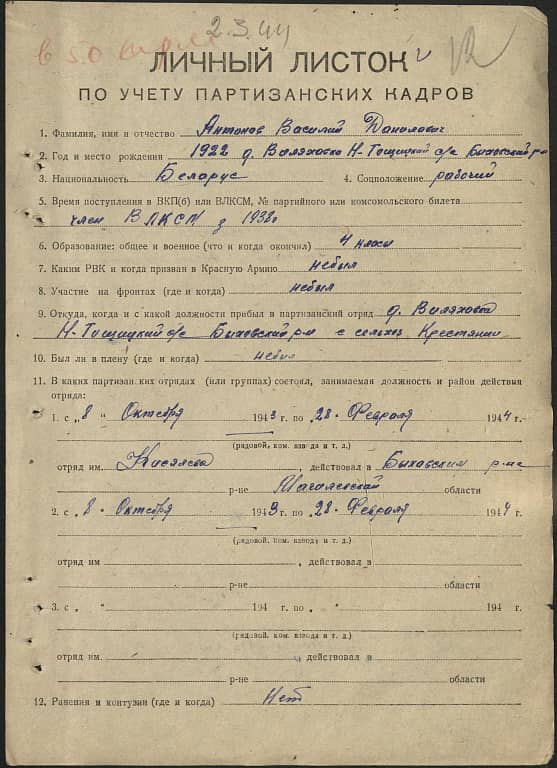 2.3.44
в 50
ЛИЧНЫЙ ЛИСТОК
ПО УЧЕТУ ПАРТИЗАНСКИХ КАДРОВ
1. Фамилия, имя и отчество Антонов Василий Данилович
2. Год и место рождения 1922 д. Виляховка Н-Тощицкий с/с Быховский р-н
3. Национальность Беларус 4. Соцположение рабочий
5. Время поступления в ВКП(б) или ВЛКСМ, № партийного или комсомольского билета
член ВЛКСМ з 1938г
6. Образование: общее и военное (что и когда окончил) 4 класы
7. Каким РВК и когда призван в Красную Армию небыл
8. Участие на фронтах (где и когда) небыл
9. Откуда, когда и с какой должности прибыл в партизанский отряд д. Виляховка
Н-Тощицкий с/с Быховский р-н с сельхоз Крестянин
10. Был ли в плену (где и когда) небыл
11. В каких партизан ких отрядах (или группах) состоял, занимаемая должность и район действия
отряда:
1. с „8 " Октября 1943 г. по „28. Февраля 1944 г.
(рядовой, ком. взвода и т. д.)
отряд им. , действовал в Быховским р-не
р-не Могилевской области
2. с „8. Октября 1943 г. по „28. Февраля 1944 г.
(рядовой, ком. взвода и т. д.)
отряд им , действовал в
р-не области
3. с „ " 194 г. по „ " 194 г.
(рядовой, ком. взвода и т. д.)
отряд им. , действовал в
р-не области
12. Ранения и контузии (где и когда) Нет